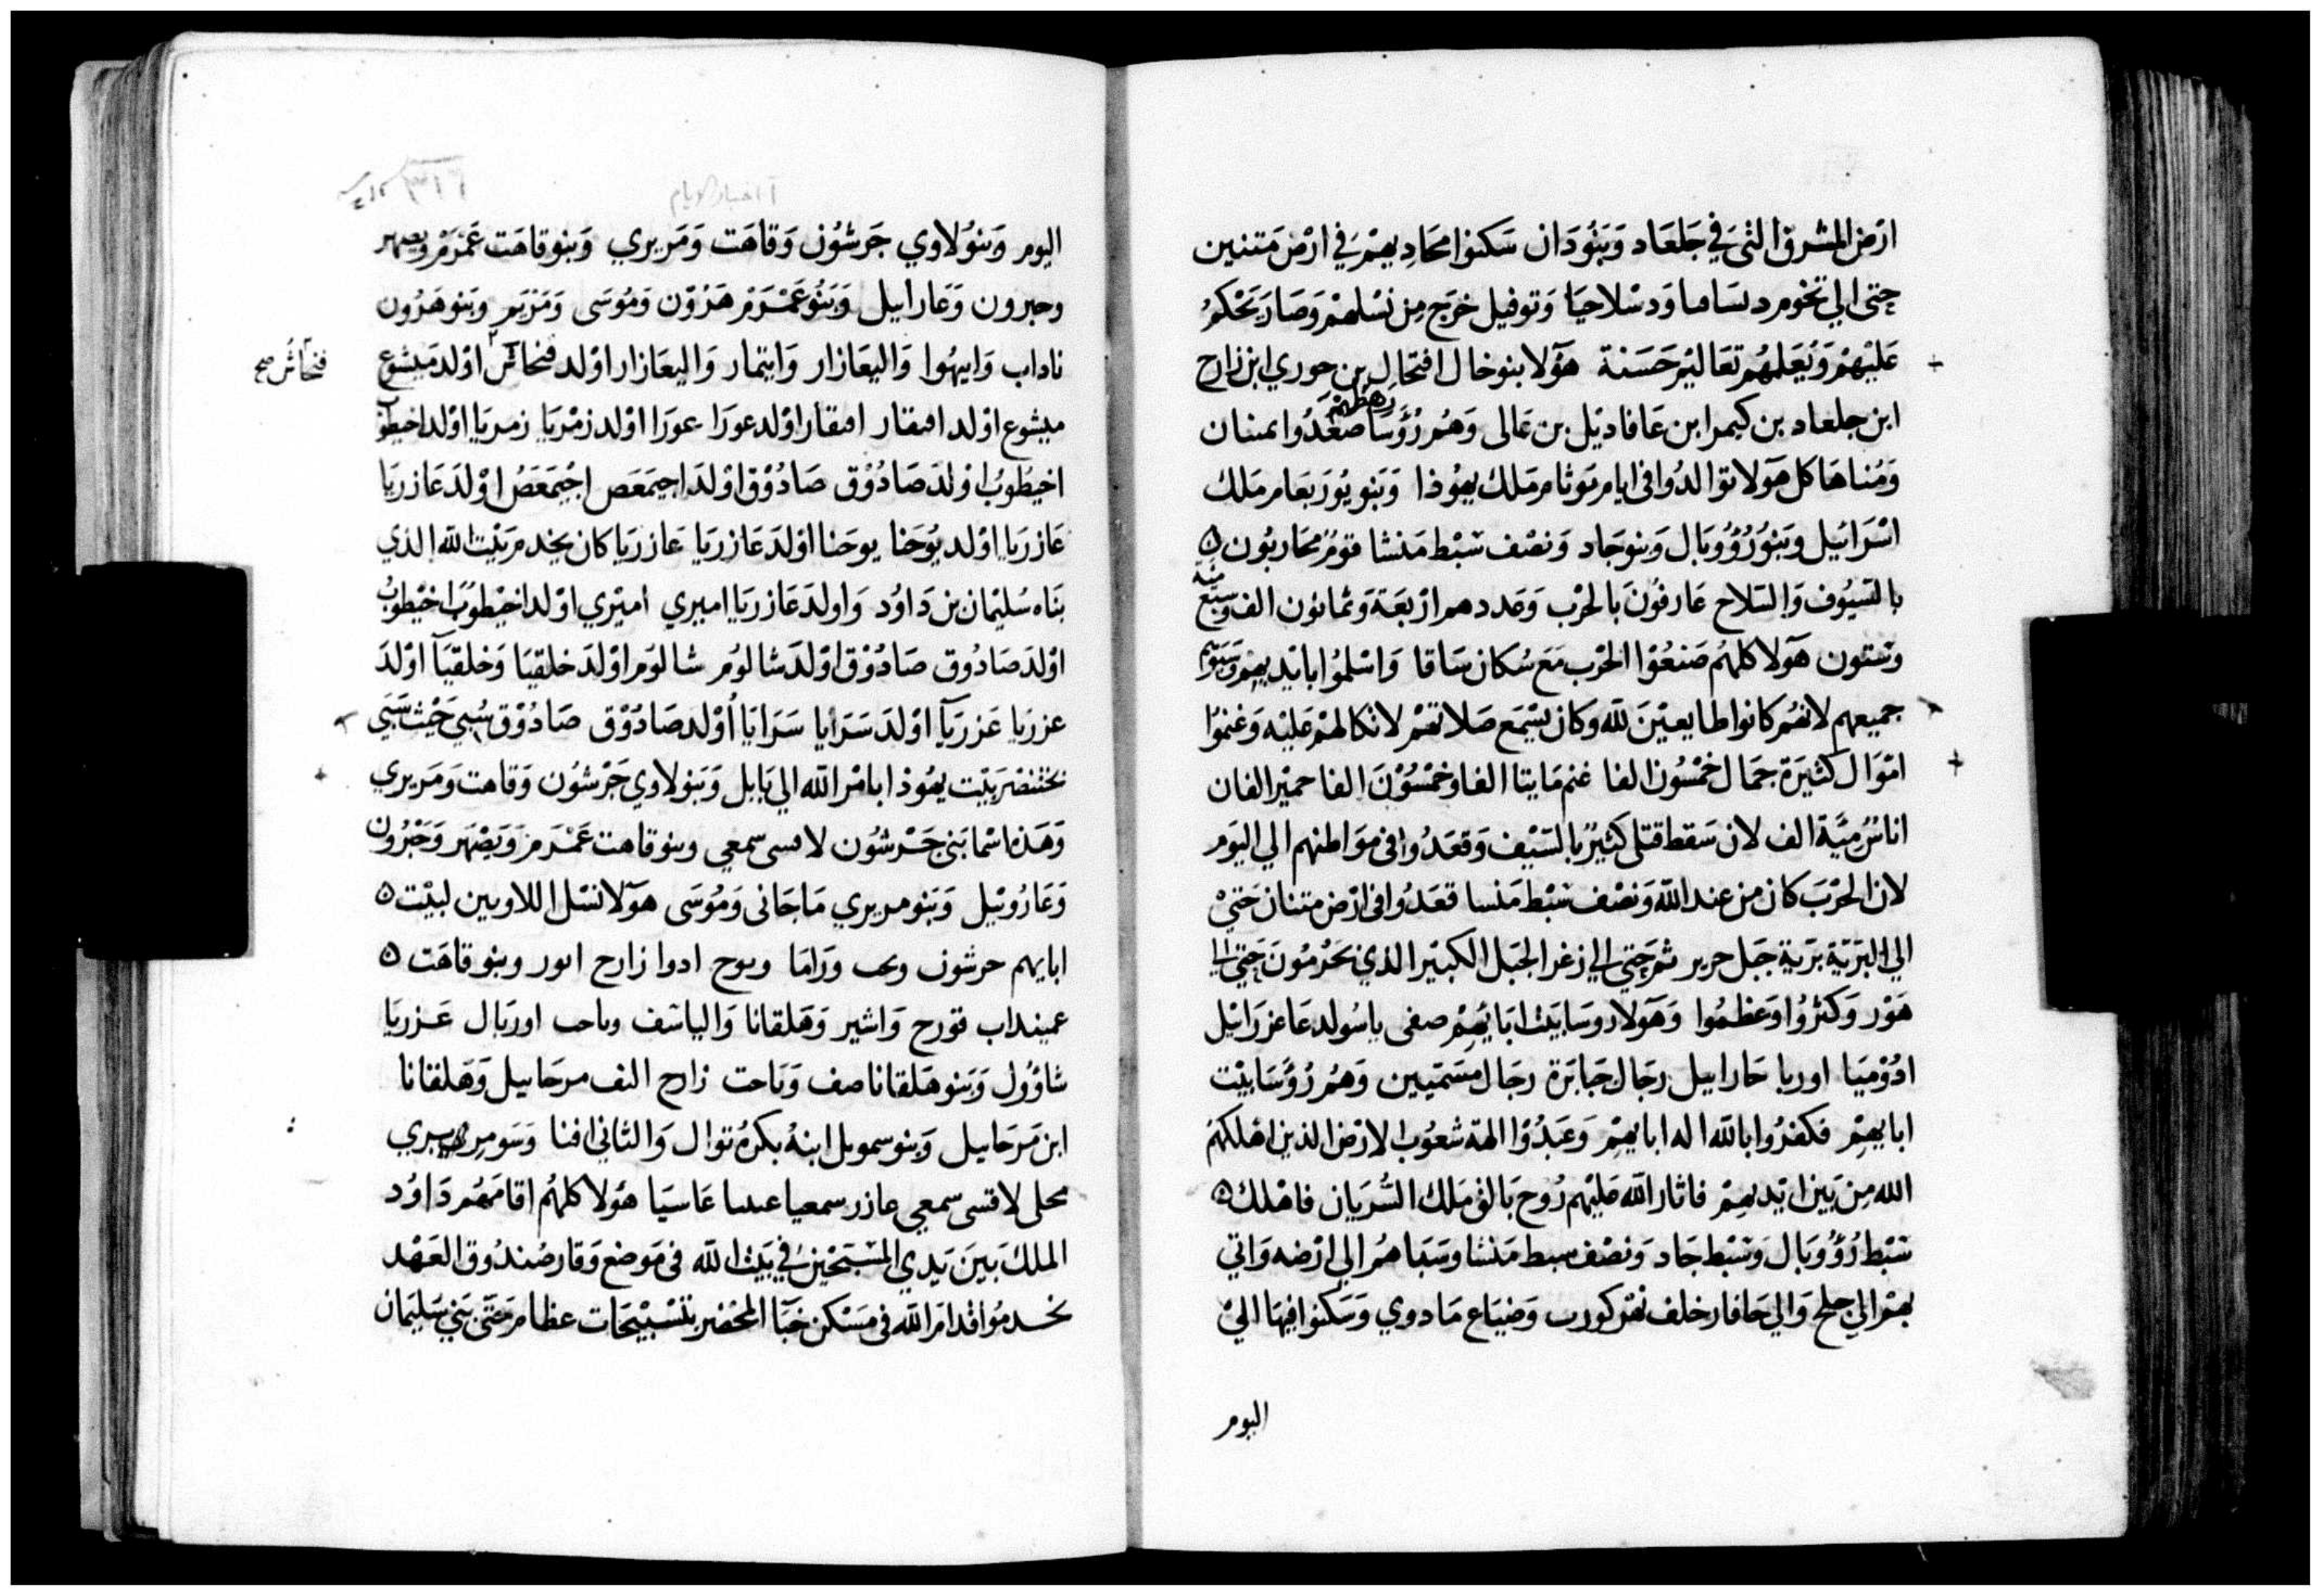 ارض المشرق التي في جلعاد وبنو دان سكنوا محاديهم في ارض متنين
حتى الي تخوم دسلاحيا وتوفيل خرج من نسلهم وصار يحكم
عليهم ويعلمهم تعاليم حسنة هولا بنو خال افتحال بن حوري ابن زارح
رهطهم
ابن جلعاد بن كيمرا بن عافاديل بن عالى وهم روسا صعدوا
ومناها كل هولا توالدوا في ايام يوثام ملك يهوذا وبنو يوربعام ملك
اسرائيل وبنو رووبال وبنو جاد ونصف سبط منشا قوم محاربون
بالسيوف والسلاح عارفون بالحرب وعددهم اربعة وثمانون الف وسبع مية
وستون هولا كلهم صنعوا الحرب مع سكان ساقا واسلموا بايديهم
جميعهم لانهم كانوا طايعين لله وكان يسمع صلاتهم لاتكالهم عليه وغنموا
اموال كثيرة جمال خمسون الفا غنم مايتا الفا وخمسون الفا حمير الفان
اناس مية الف لان سقط قتلى كثير بالسيف وقعدوا في مواطنهم الي اليوم
لان الحرب كان من عند الله ونصف سبط منسا قعدوا في ارض متنان حتي
الي البرية برية جبل حرير ثم حتي الي زغر الجبل الكبير الذي حتي الي
هور وكثروا وعظموا وهولا روسا بيت ابايهم صفى ياسولد عا عزرايل
ادوميا اوريا حارابيل رجال جبابرة رجال مسميين وهم روسا بيت
ابايهم فكفروا بالله اله ابايهم وعبدوا الهة شعوب الارض الذين اهلكهم
الله من بين ايديهم فاثار الله عليهم روح بالق ملك السريان فاهلك
سبط رووبال وسبط جاد ونصف سبط منشا وسباهم الي ارضه واتي
بهم الي حلح والي حافار خلف نهر كورب وضياع مادوي وسكنوا فيها الي
اليوم
ا اخبار الايام
اليوم وبنو لاوي جرشون وقاهت ومريري وبنو قاهت عمرم ويصهر
وحبرون وعارابيل وبنو عمرم هرون وموسى ومريم وبنو هرون
ناداب وابيهوا واليعازار وايتمار واليعازار اولد فنحاس اولد ميشوع
فنحاس صح
ميشوع اولد افيقار افيقار اولد عورا عورا اولد زمريا زمريا اولد اخيطوب
اخيطوب اولد صادوق صادوق اولد اجيمعص اجيمعص اولد عازريا
عازريا اولد يوحنا يوحنا اولد عازريا عازريا كان يخدم بيت الله الذي
بناه سليمان بن داوود واولد عازريا اميري اميري اولد اخيطوب اخيطوب
اولد صادوق صادوق اولد شالوم شالوم اولد خلقيا وخلقيا اولد
عزريا عزريا اولد سرايا سرايا اولد صادوق صادوق سبي حيث سبي
بختنضر بيت يهوذا بامر الله الي بابل وبنو لاوي جرشون وقاهت ومريري
وهذه اسما بني جرشون لابسي سمعي وبنو قاهت عمرم ويصهر وحبرون
وعاروئيل وبنو مريري ماحانى وموسى هولا نسل اللاويين لبيت
ابايهم جرشون وراما ويوح ادوا زارح اتور وبنو قاهت
عمينداب قورح واشير وهلقانا والياسف وباحت اوريال عزريا
شاوول وبنو هلقانا صف وناحت زارح الف مرحابيل وهلقانا
ابن مرحابيل وبنو سمويل ابنه بكره توال والثاني افنا وبنو مريري
محلى لابسي سمعي عازر سمعيا عاسيا هولا كلهم اقامهم داوود
الملك بين يدي المسبحين في بيت الله في موضع وقار صندوق العهد
يخدموا قدام الله في مسكن خبا المحضر بتسبيحات عظام حتى بني سليمان